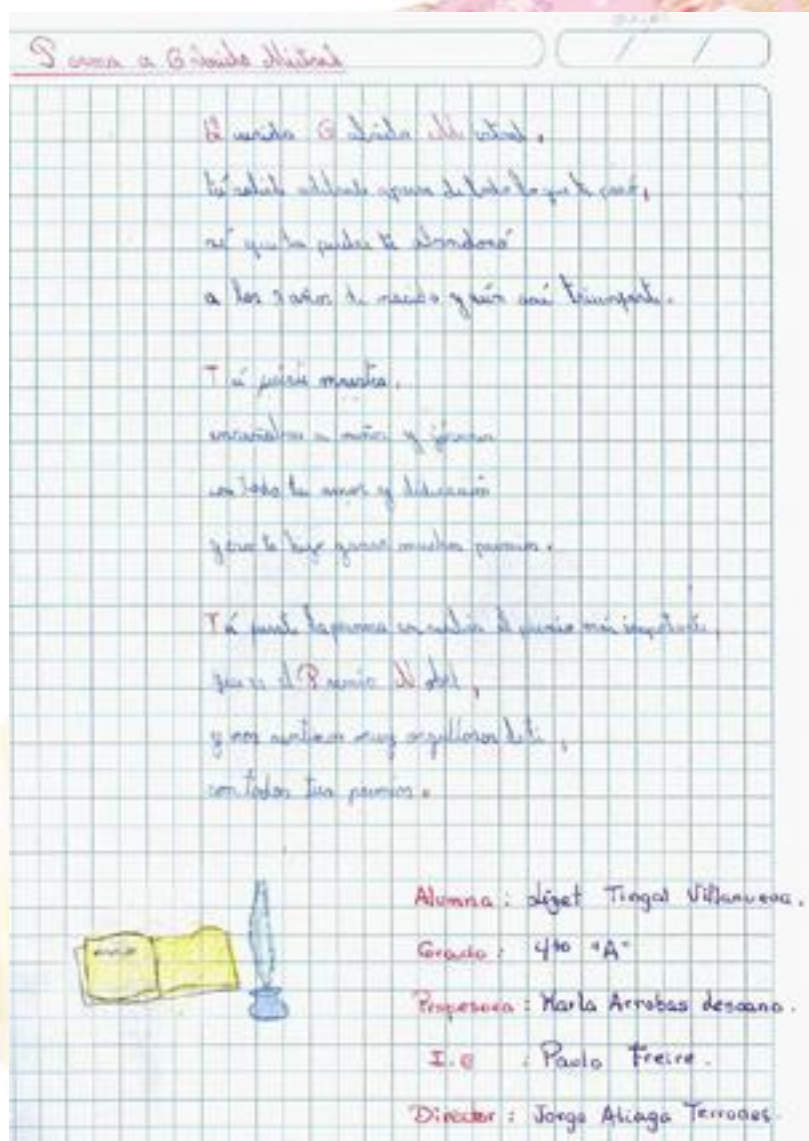 Poema a Gabriela Mistral
Querida Gabriela Mistral,
tú saliste adelante apesar de todo lo que te pasó,
sé que tu padre te abandonó
a los 3 años de nacido y aún así triunfaste.
Tú fuiste maestra,
enseñabas a niños y jóvenes
con todo tu amor y dedicación
y eso te hizo ganar muchos premios.
Tú fuiste la primera en recibir el premio más importante,
que es el Premio Nobel,
y nos sentimos muy orgullosos de ti,
con todos tus premios.
Alumna : Lizet Tingal Villanueva.
Grado : 4to "A"
Profesora : Karla Arrobas
I.E : Paulo Freire.
Director : Jorge Aliaga Terrones.